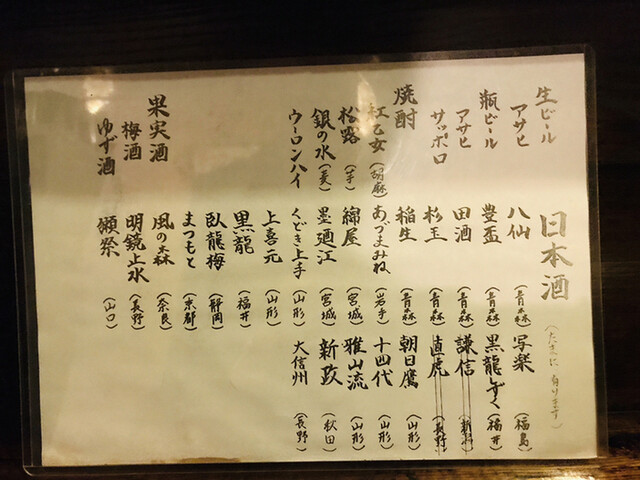 生ビール
アサヒ
瓶ビール
アサヒ
サッポロ
焼酎
紅乙女(胡麻)
松露(芋)
銀の水(麦)
ウーロンハイ
果実酒
梅酒
ゆず酒
日本酒
八仙(青森)
豊盃(青森)
田酒(青森)
杉玉(青森)
稲生(青森)
あづまみね(岩手)
綿屋(宮城)
墨廼江(宮城)
くどき上手(山形)
上喜元(山形)
黒龍(福井)
臥龍梅(静岡)
まつもと(京都)
風の森(奈良)
明鏡止水(長野)
獺祭(山口)
(たまに有ります)
写楽(福島)
黒龍しずく(福井)
謙信(新潟)
直虎(長野)
朝日鷹(山形)
十四代(山形)
雅山流(山形)
新政(秋田)
大信州(長野)